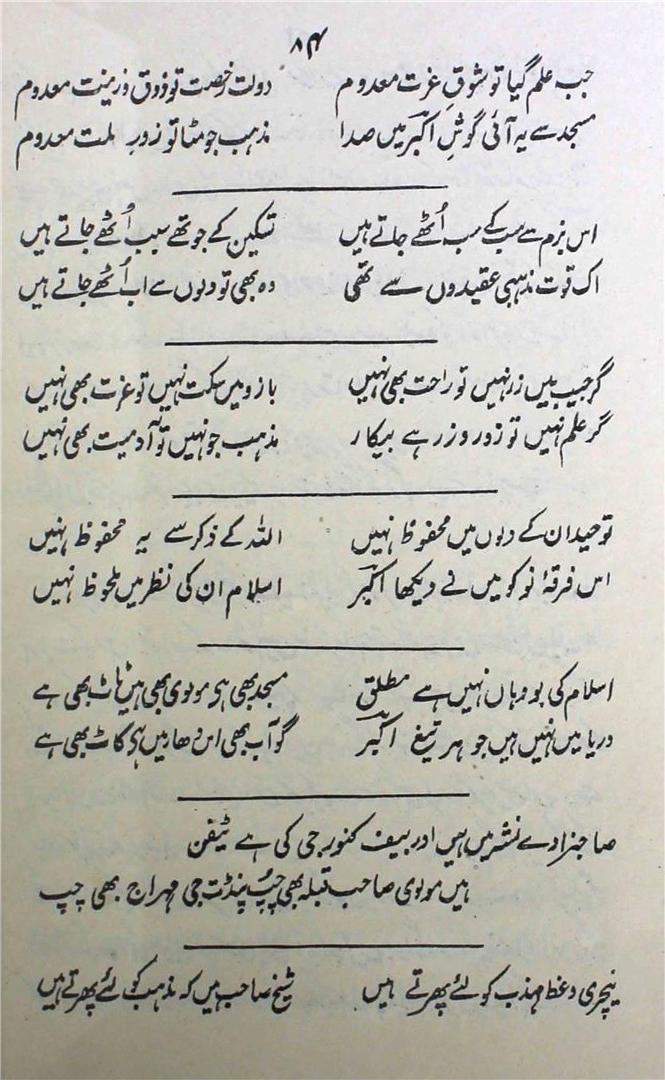 ۸۴
جب علم گیا تو شوقِ عزت معدوم دولت رخصت تو ذوق و زینت معدوم
مسجد سے یہ آئی گوشِ اکبر میں صدا مذہب جو مٹا تو زورِ ملت معدوم
اس بزم سے سب کے سب اُٹھے جاتے ہیں تسکین کے جو تھے سبب اُٹھے جاتے ہیں
اک قوت مذہبی عقیدوں سے تھی وہ بھی تو دلوں سے اب اُٹھے جاتے ہیں
گر جیب میں زر نہیں تو راحت بھی نہیں بازو میں سکت نہیں تو عزت بھی نہیں
گر علم نہیں تو زور و زر ہے بیکار مذہب جو نہیں تو آدمیت بھی نہیں
توحید ان کے دلوں میں محفوظ نہیں اللہ کے ذکر سے یہ محظوظ نہیں
اس فرقۂ نو کو میں نے دیکھا اکبر اسلام ان کی نظر میں ملحوظ نہیں
اسلام کی بو وہاں نہیں ہے مطلق مسجد بھی ہے مولوی بھی ہیں ٹاٹ بھی ہے
دریا میں نہیں ہیں جوہر تیغ اکبر گو آب بھی اس دھار میں ہے کاٹ بھی ہے
صاحبزادے نشہ میں ہیں اور بیف کنور جی کی ہے ٹیفن
ہیں مولوی صاحب قبلہ بھی چپ پنڈت جی مہراج بھی چپ
نیچری وعظ مہذب کو لئے پھرتے ہیں شیخ صاحب ہیں کہ مذہب کو لئے پھرتے ہیں